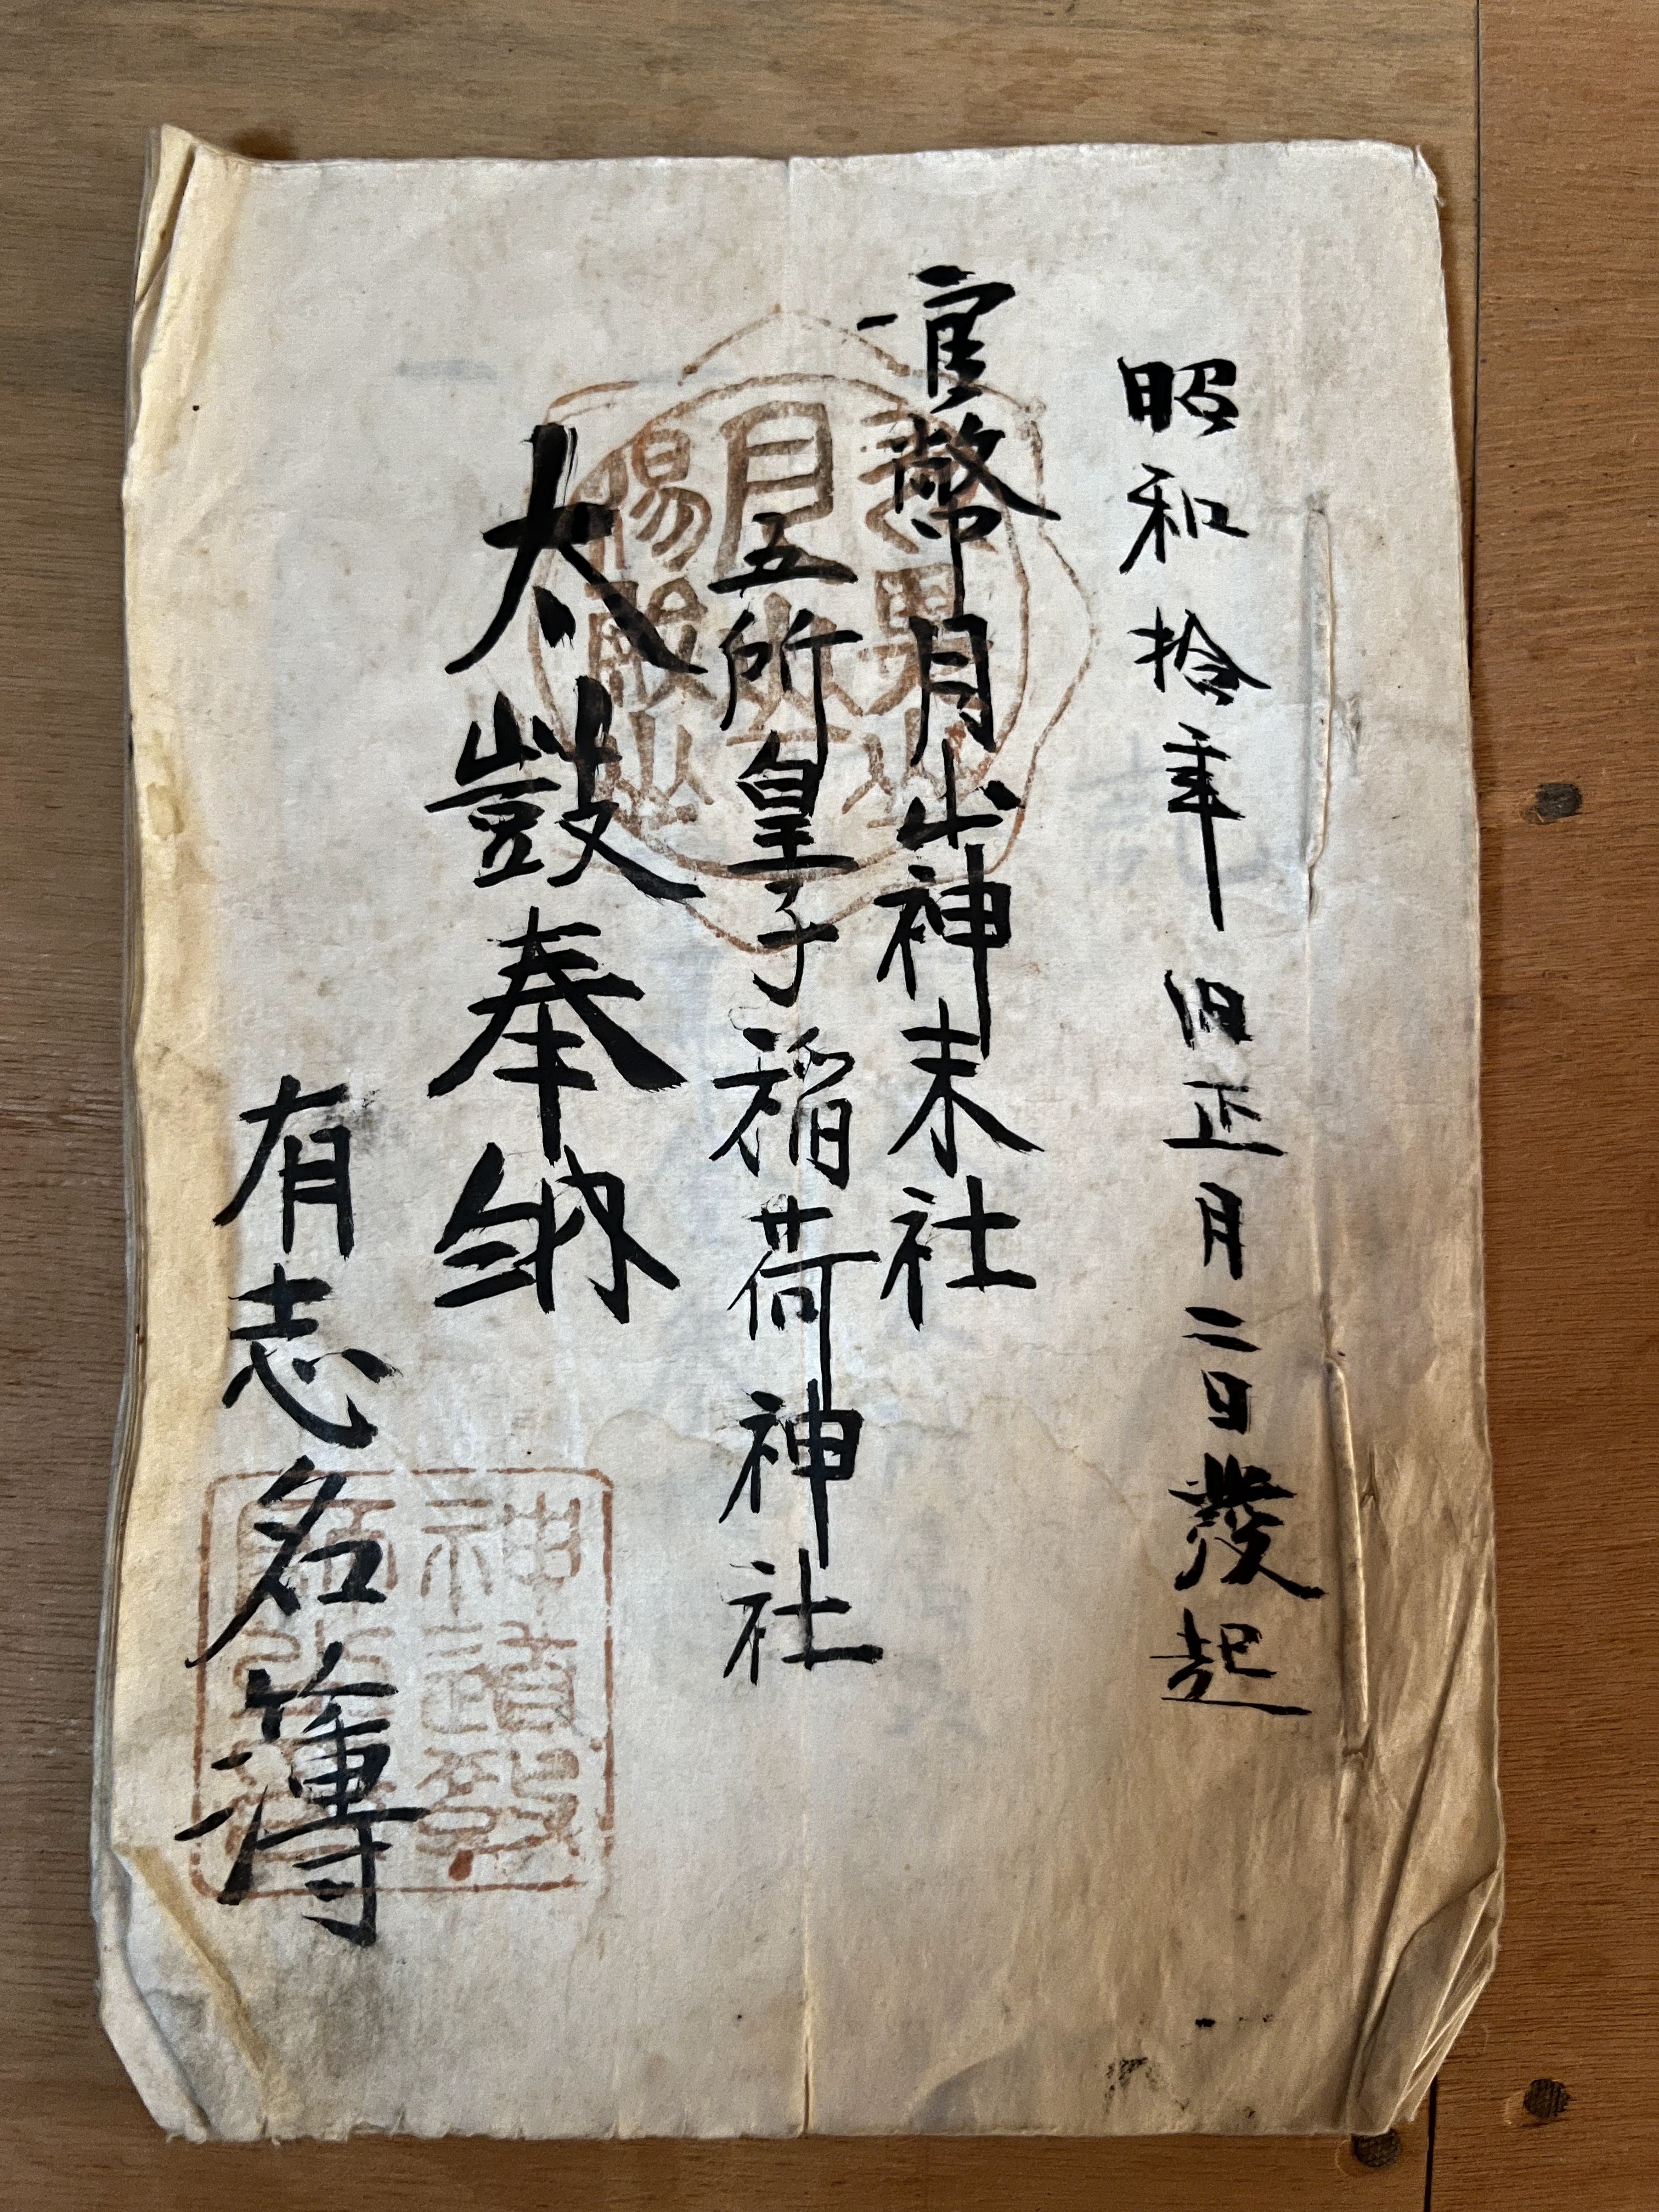 昭和拾年旧正月二日發起
官幣月山神末社
五所皇子稲荷神社
太鼓奉納
有志名簿
神道教